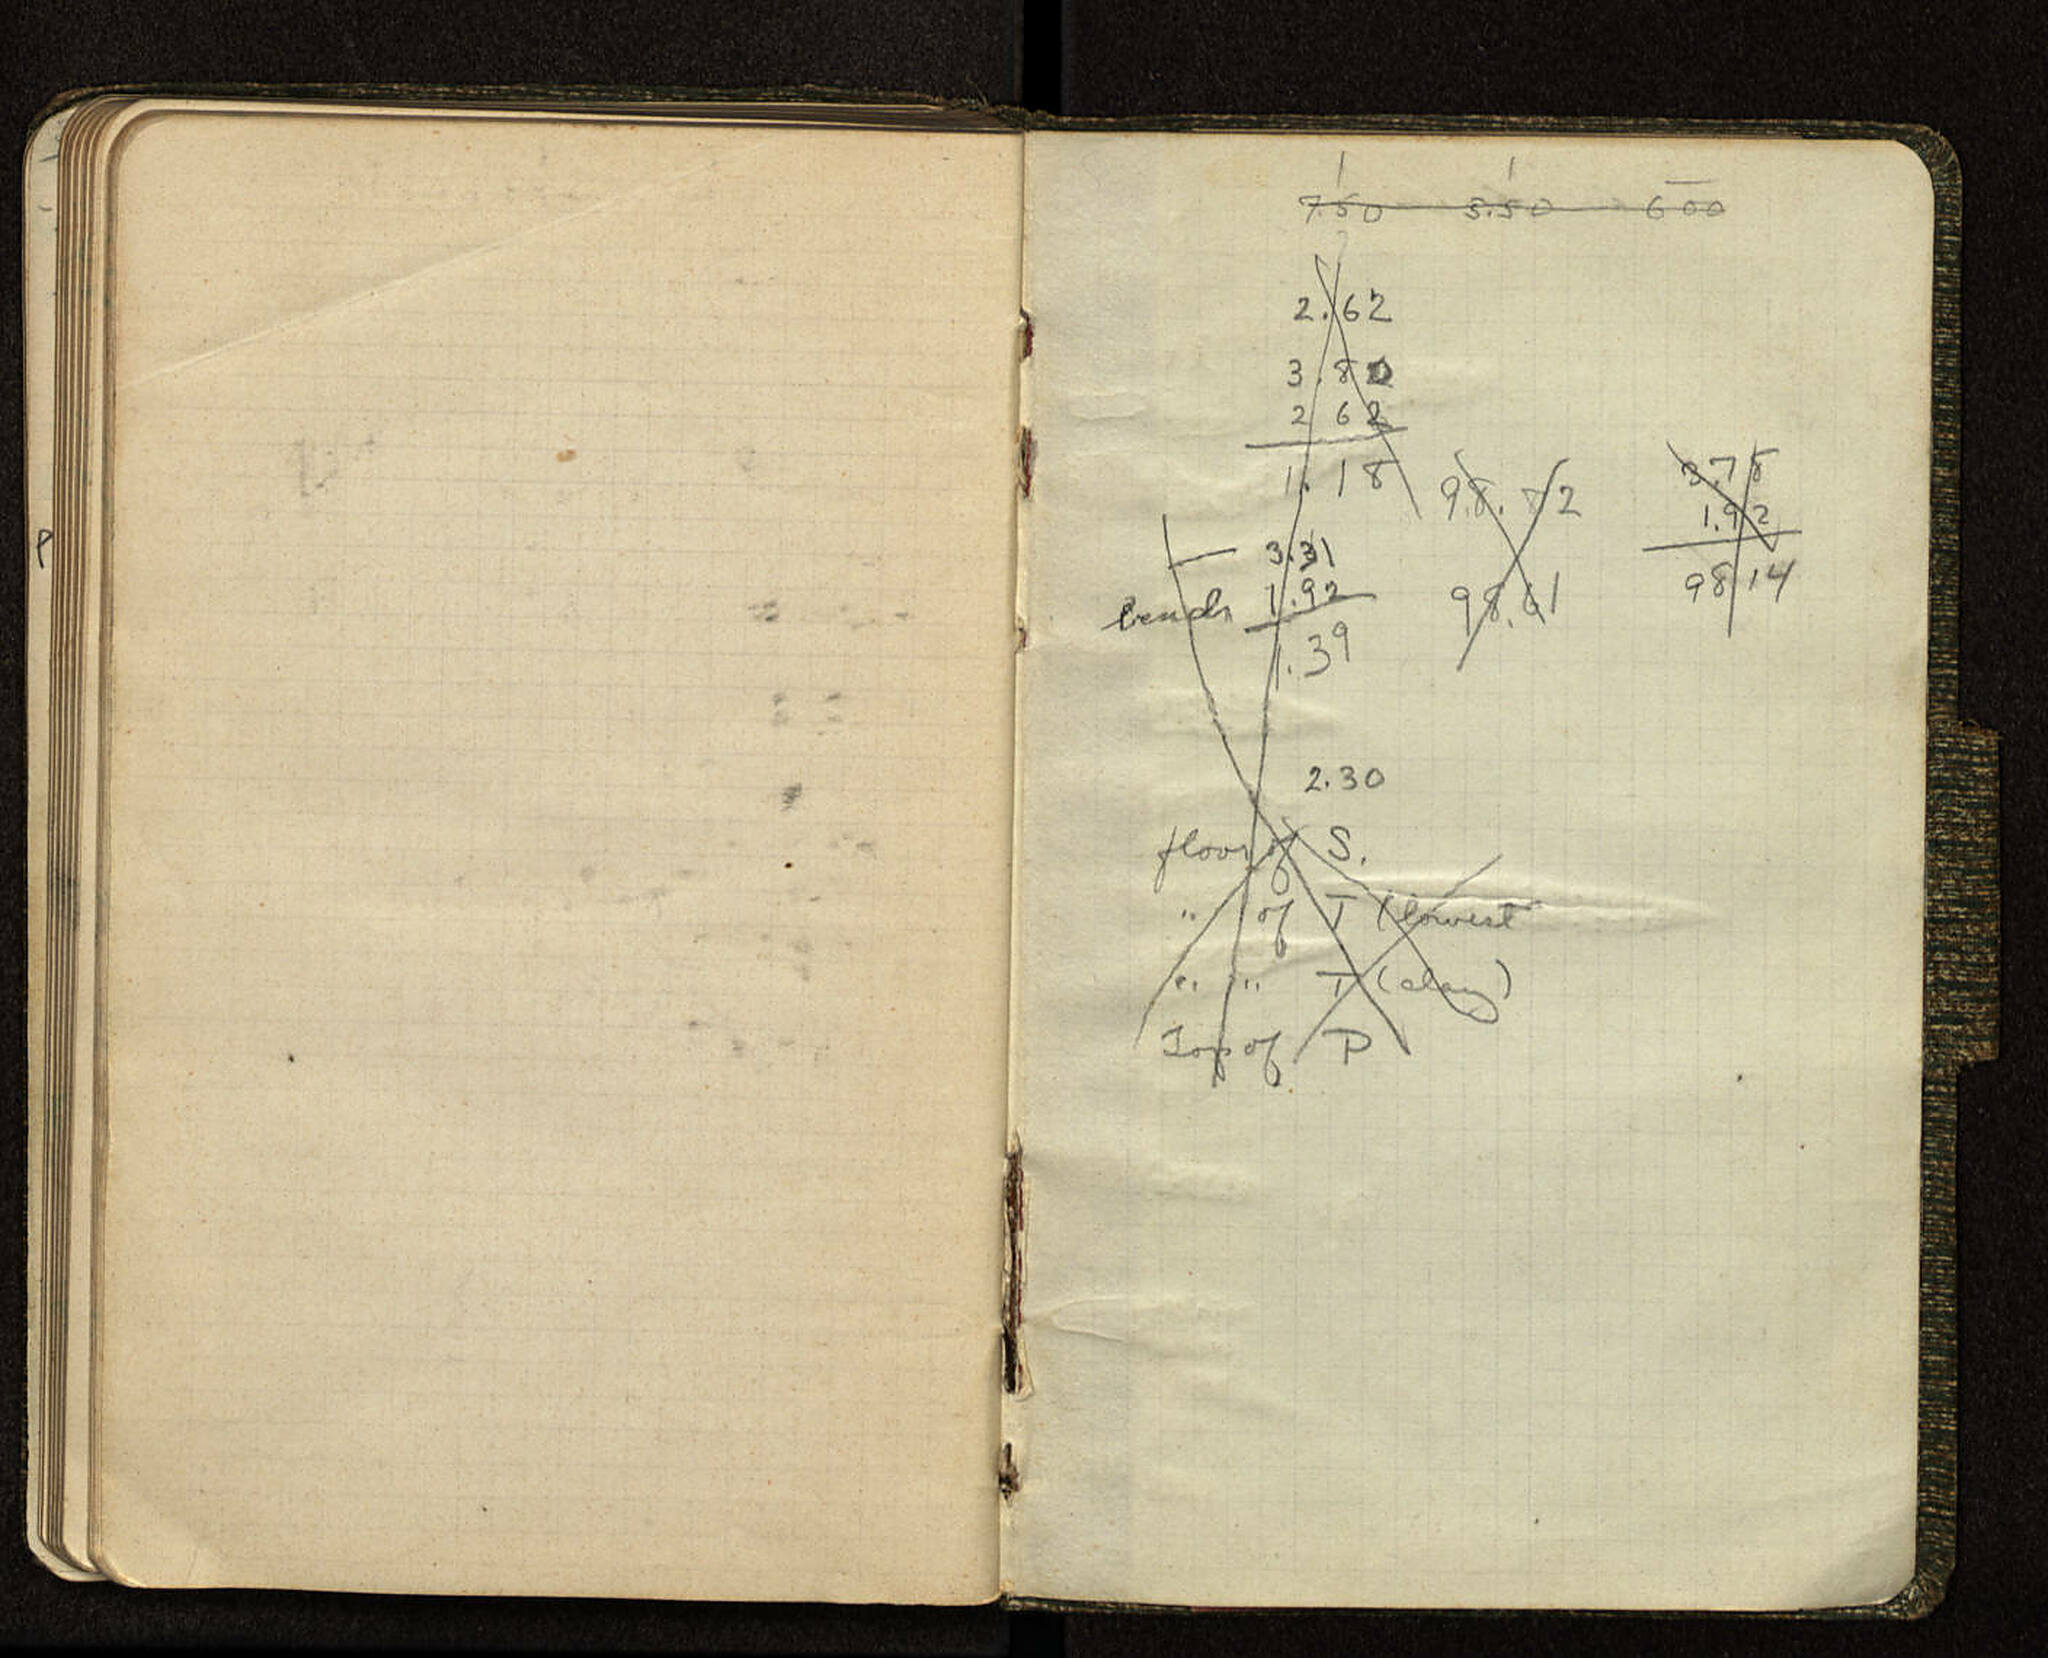 P
7.50 5.50 600
2.62
3.80
2 62
1.18
98.72
98.61
3.78
1.92
98 14
3.31
bench 1.92
1.39
2.30
floor of S.
" of T (lowest
" " T (clay)
Top of P